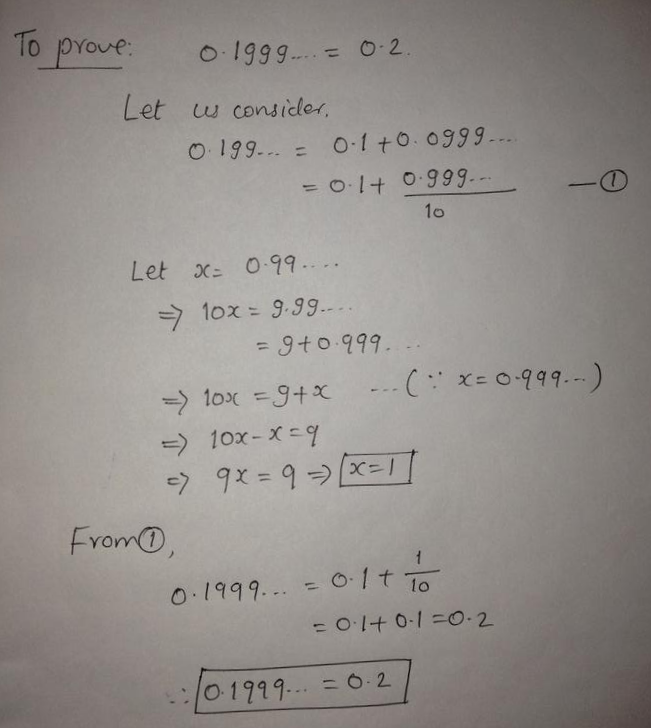 To prove: 0.1999.... = 0.2.
Let us consider,
0.199... = 0.1 + 0.0999....
= 0.1 + 0.999... / 10 — ①
Let x = 0.99....
⇒ 10x = 9.99....
= 9 + 0.999. ..
⇒ 10x = 9 + x ...(∵ x = 0.999...)
⇒ 10x - x = 9
⇒ 9x = 9 ⇒ x = 1
From ①,
0.1999... = 0.1 + 1/10
= 0.1 + 0.1 = 0.2
∴ 0.1999... = 0.2